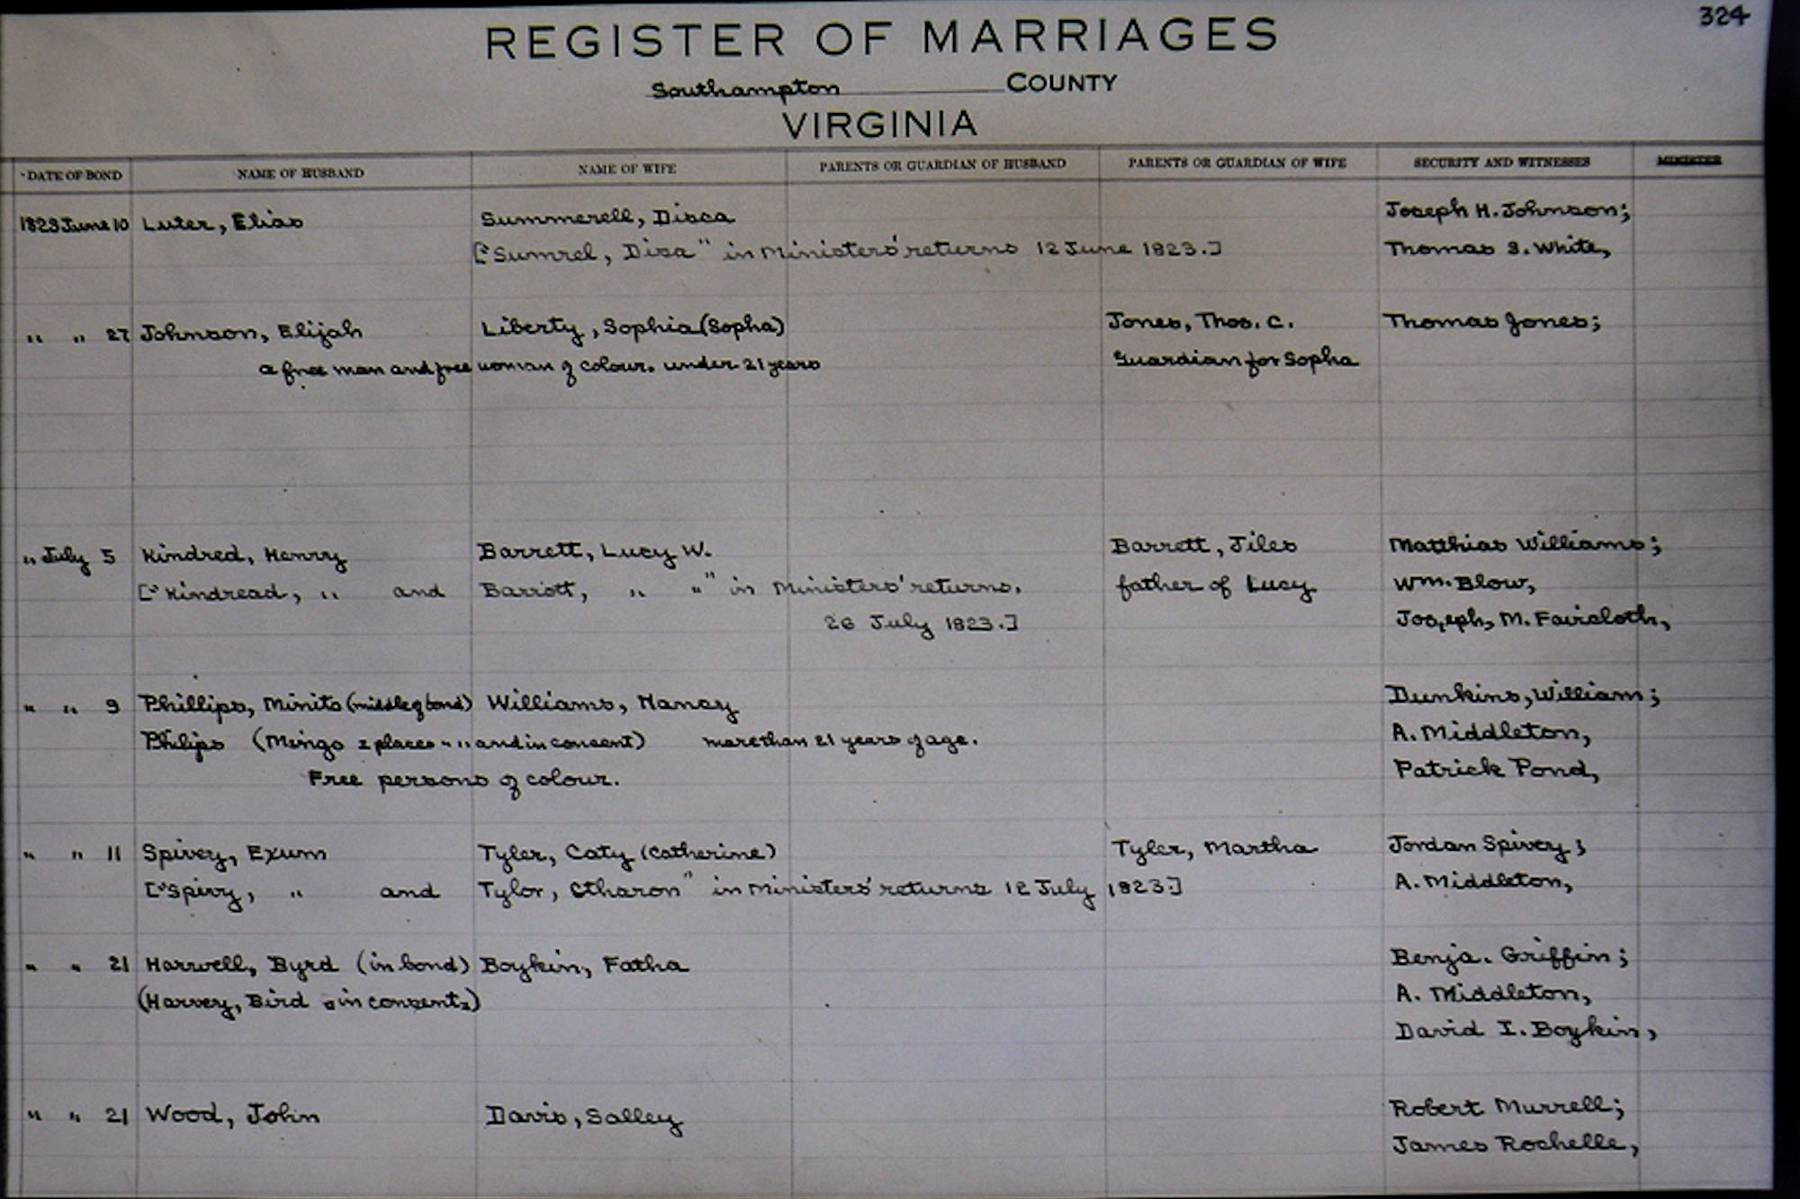 324
REGISTER OF MARRIAGES
Southampton COUNTY
VIRGINIA
DATE OF BOND NAME OF HUSBAND NAME OF WIFE PARENTS OR GUARDIAN OF HUSBAND PARENTS OR GUARDIAN OF WIFE SECURITY AND WITNESSES MINISTER
1823 June 10 Luter, Elias Summerell, Disca Joseph H. Johnson;
["Sumrel, Disa" in Ministers' returns 12 June 1823.] Thomas S. White,
" " 27 Johnson, Elijah Liberty, Sophia (Sopha) Jones, Thos. C. Thomas Jones;
a free man and free woman of colour. under 21 years Guardian for Sopha
" July 5 Kindred, Henry Barrett, Lucy W. Barrett, Jiles Matthias Williams;
["Kindread, " and Barriott, " "" in Ministers' returns, father of Lucy Wm. Blow,
26 July 1823.] Joseph, M. Faircloth,
" " 9 Phillips, Minito (middle of bond) Williams, Nancy Dunkins, William;
Philips (Mingo 2 places " " and in consent) more than 21 years of age. A. Middleton,
Free persons of colour. Patrick Pond,
" " 11 Spivey, Exum Tyler, Caty (Catherine) Tyler, Martha Jordan Spivey;
["Spivy, " and Tylor, Ctharon" in Ministers' returns 12 July 1823.] A. Middleton,
" " 21 Harwell, Byrd (in bond) Boykin, Fatha Benja. Griffin;
(Harvey, Bird in consent) A. Middleton,
David I. Boykin,
" " 21 Wood, John Davis, Salley Robert Murrell;
James Rochelle,